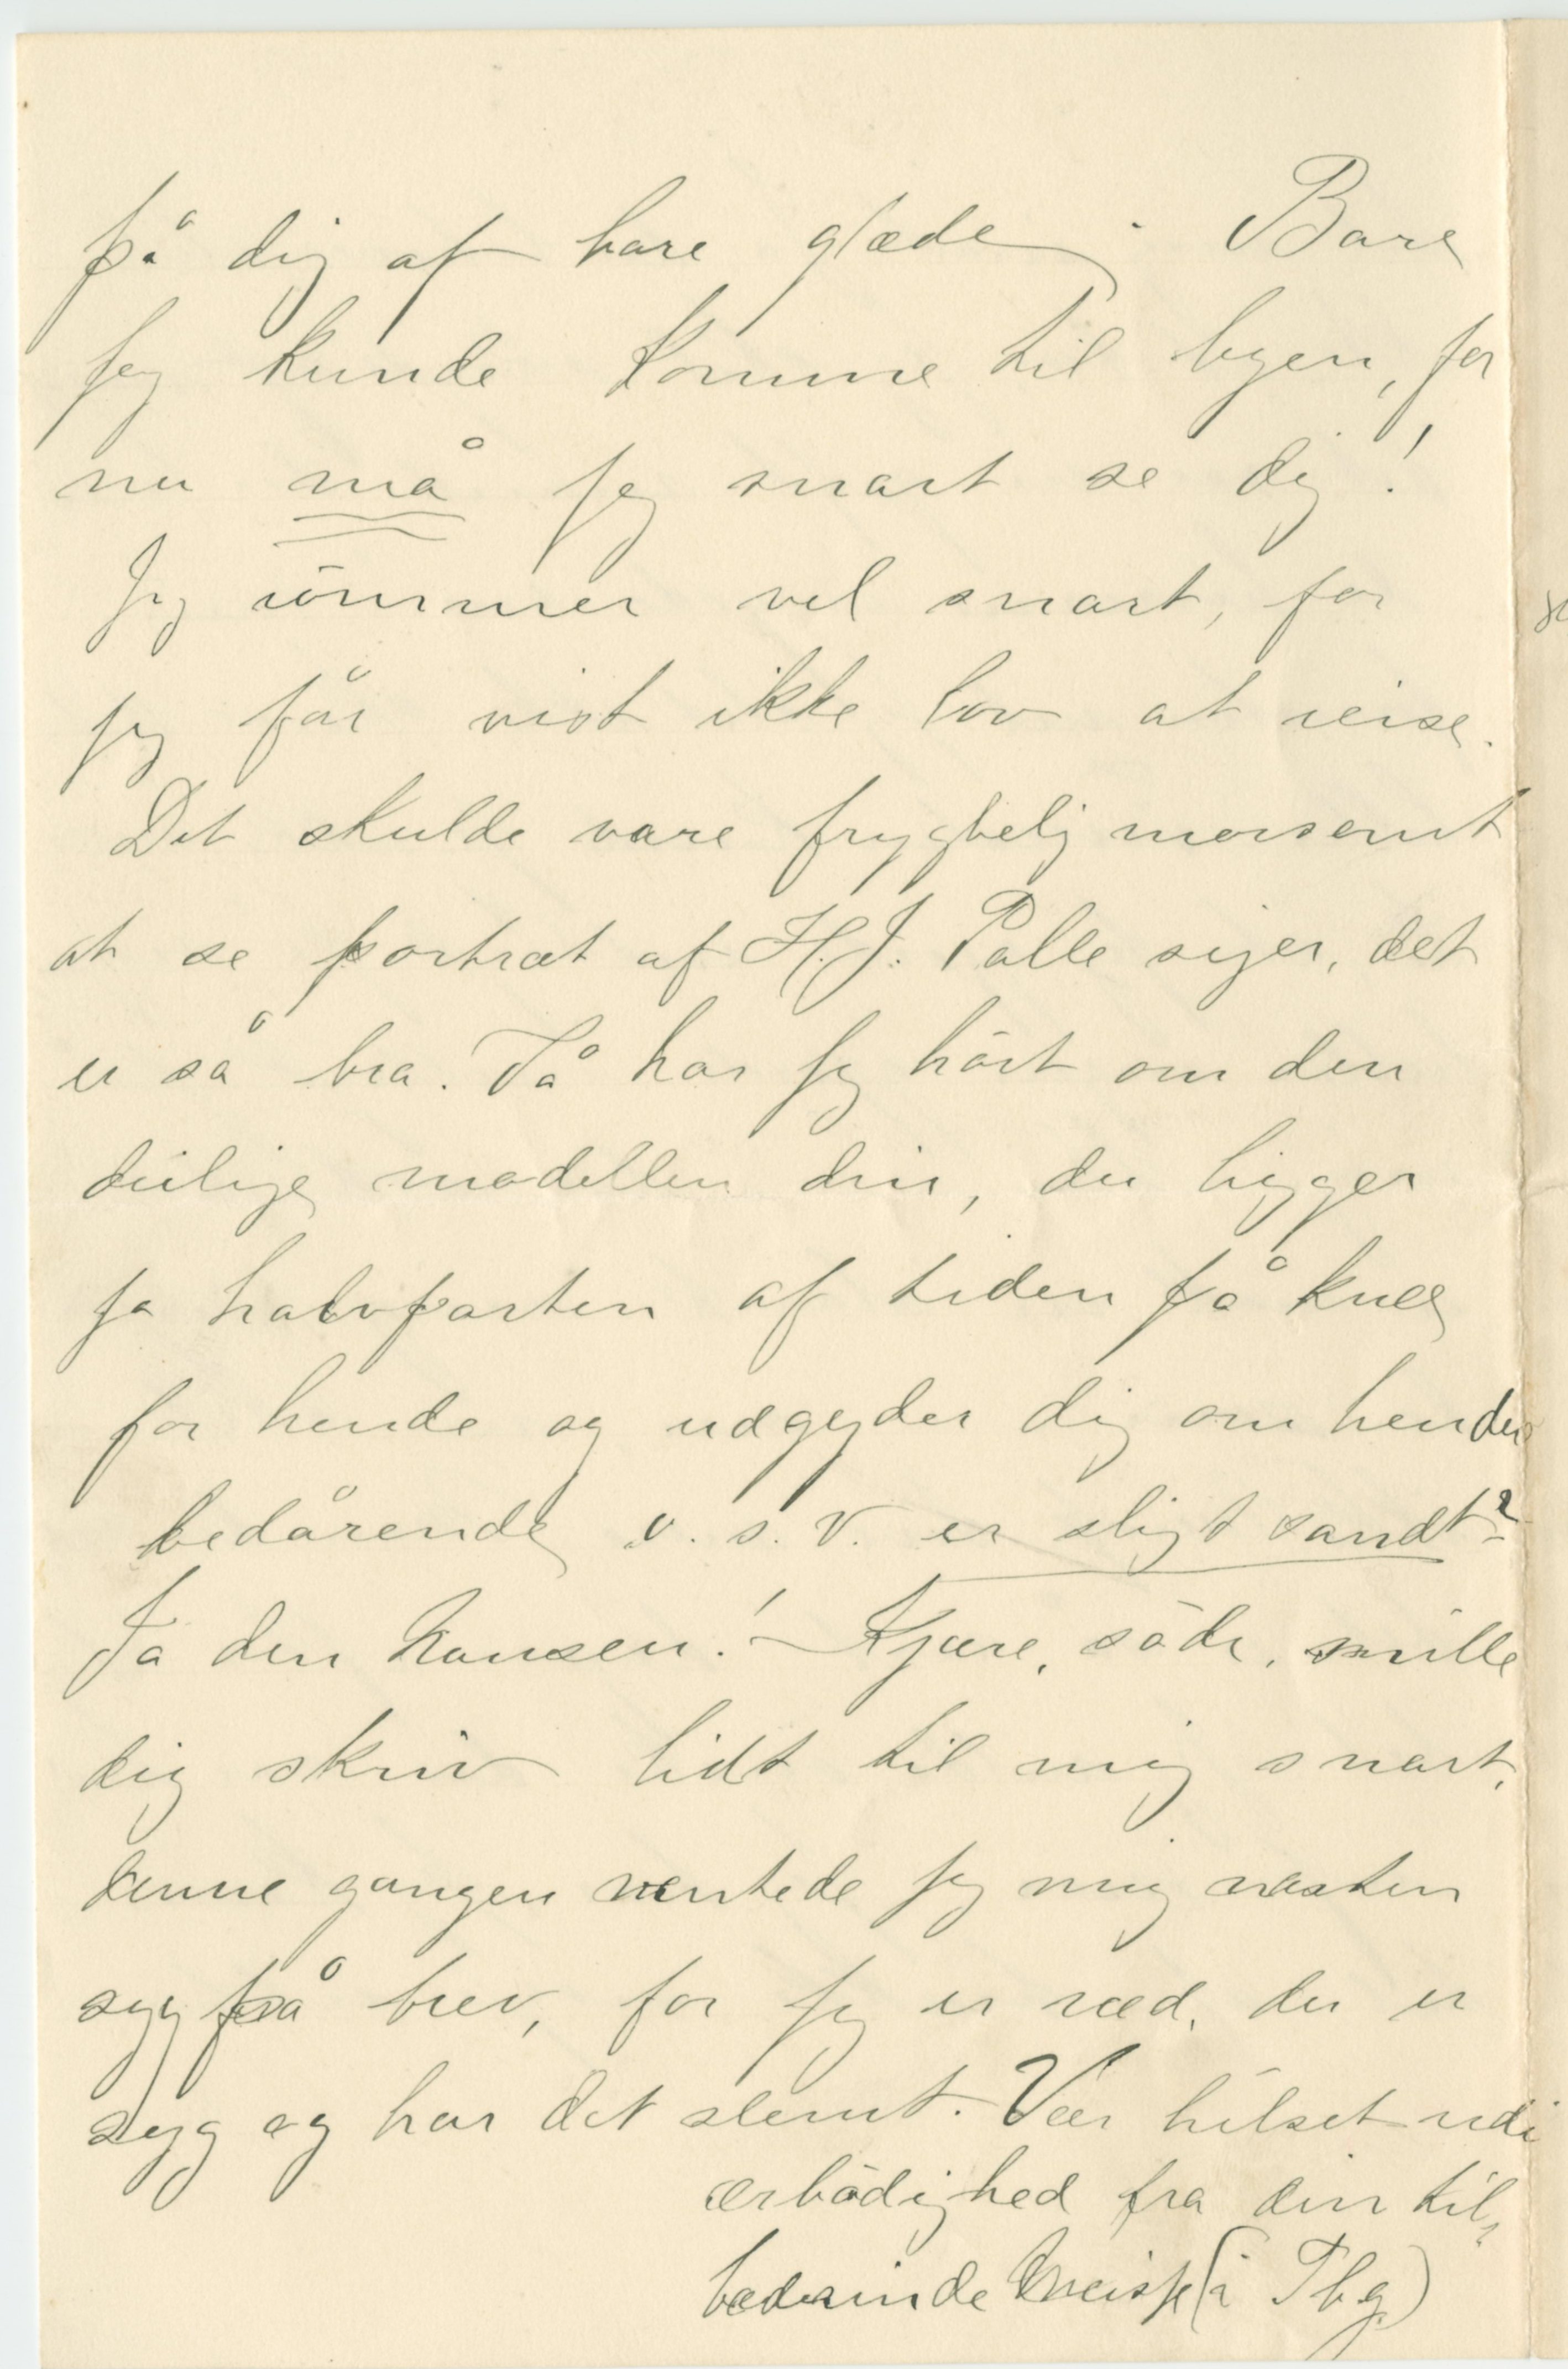 på dig af bare glæde. Bare
jeg kunde komme til byen, for
nu må jeg snart se dig!
Jeg römmer vel snart, for
jeg får vist ikke lov at reise.
Det skulde være frygtelig morsomt
at se portræt af H.J. Palle siger, det
er så bra. Så har jeg hört om den
deilige modellen din, du ligger
ja halvparten af tiden på knæ
for hende og udgyder dig om hendes
bedårende o.s.v. er sligt sandt?
Ja den Hansen! – Kjære, söde, snille
dig skriv lidt til mig snart,
denne gangen ventede jeg mig næsten
syg på brev, for jeg er ræd, du er
syg og har det slemt. Vær hilset udi
ærbödighed fra din til„
bederinde (i Tbg)